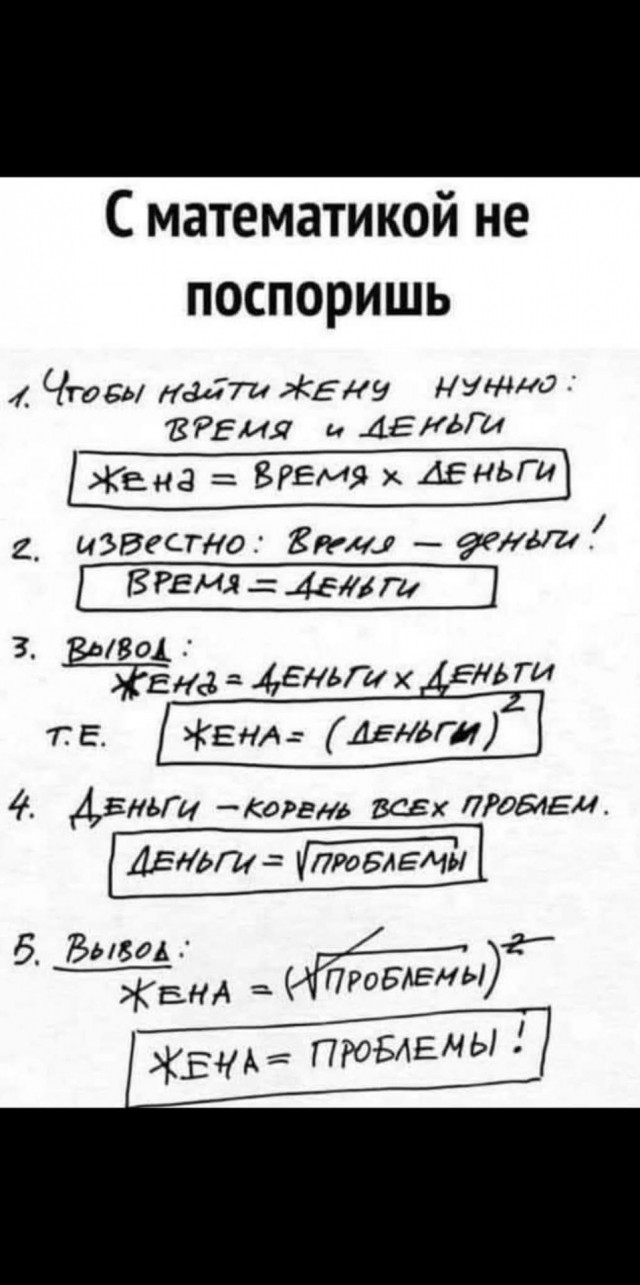 С математикой не
поспоришь
1. Чтобы найти жену нужно:
ВРЕМЯ и ДЕНЬГИ
Жена = ВРЕМЯ х ДЕНЬГИ
2. известно: Время – деньги!
ВРЕМЯ = ДЕНЬГИ
3. ВЫВОД:
ЖЕНА = ДЕНЬГИ х ДЕНЬГИ
Т.Е. ЖЕНА = (ДЕНЬГИ)²
4. ДЕНЬГИ – КОРЕНЬ ВСЕХ ПРОБЛЕМ.
ДЕНЬГИ = √ПРОБЛЕМЫ
5. ВЫВОД:
ЖЕНА = (√ПРОБЛЕМЫ)²
ЖЕНА = ПРОБЛЕМЫ!